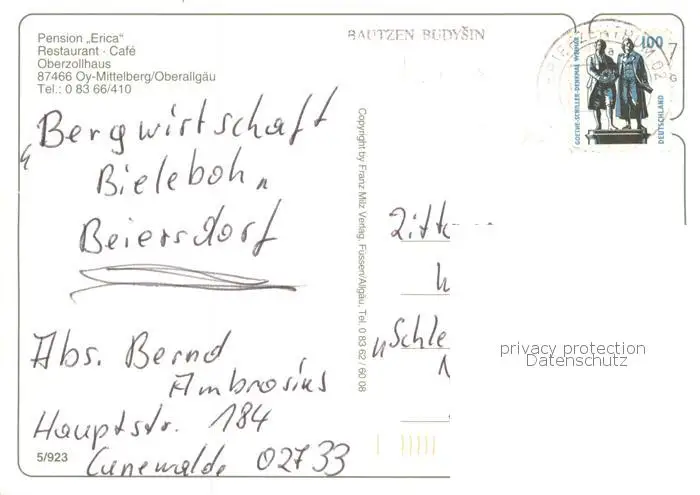 Pension „Erica"
Restaurant · Café
Oberzollhaus
87466 Oy-Mittelberg/Oberallgäu
Tel.: 0 83 66/410
"Bergwirtschaft
Bieleboh"
Beiersdorf
Abs. Bernd
Ambrosius
Hauptstr. 184
Cunewalde 02733
5/923
Copyright by Franz Milz Verlag, Füssen/Allgäu, Tel. 0 83 62 / 60 08
BAUTZEN BUDYŠIN
BRIEFZENTRUM 02
GOETHE-SCHILLER-DENKMAL WEIMAR
100
DEUTSCHLAND
Zitt
"Schle
privacy protection
Datenschutz